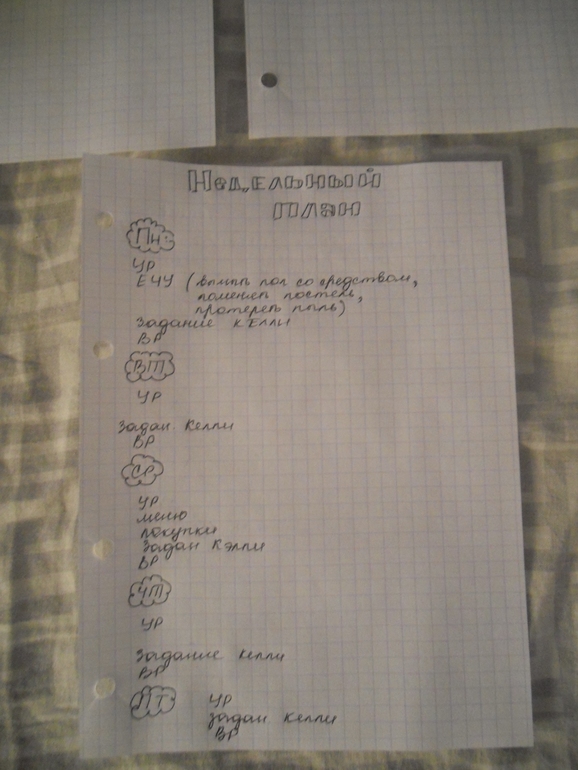 Недельный
план
Пн
УР
ЕЧУ (вымыть пол со средством,
поменять постель,
протереть пыль)
Задание Келли
ВР
ВТ
УР
Задан Келли
ВР
Ср
УР
меню
покупки
Задан Кэлли
ВР
ЧТ
УР
Задание Келли
ВР
ПТ
УР
Задан Келли
ВР